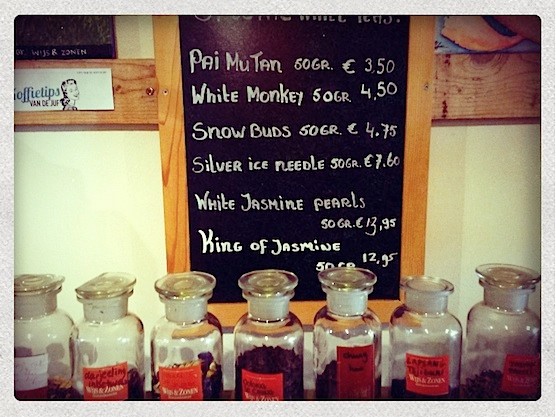 WIJS & ZONEN
Koffietips
VAN DE JUF
WHITE TEAS!
PAI MU TAN 50GR. € 3,50
WHITE MONKEY 50GR. 4,50
SNOW BUDS 50GR. € 4.75
SILVER ICE NEEDLE 50GR. €7.60
WHITE JASMINE PEARLS
50GR. € 13,95
KING OF JASMINE
50GR 12,95
Darjeeling
WIJS & ZONEN
WIJS & ZONEN
WIJS & ZONEN